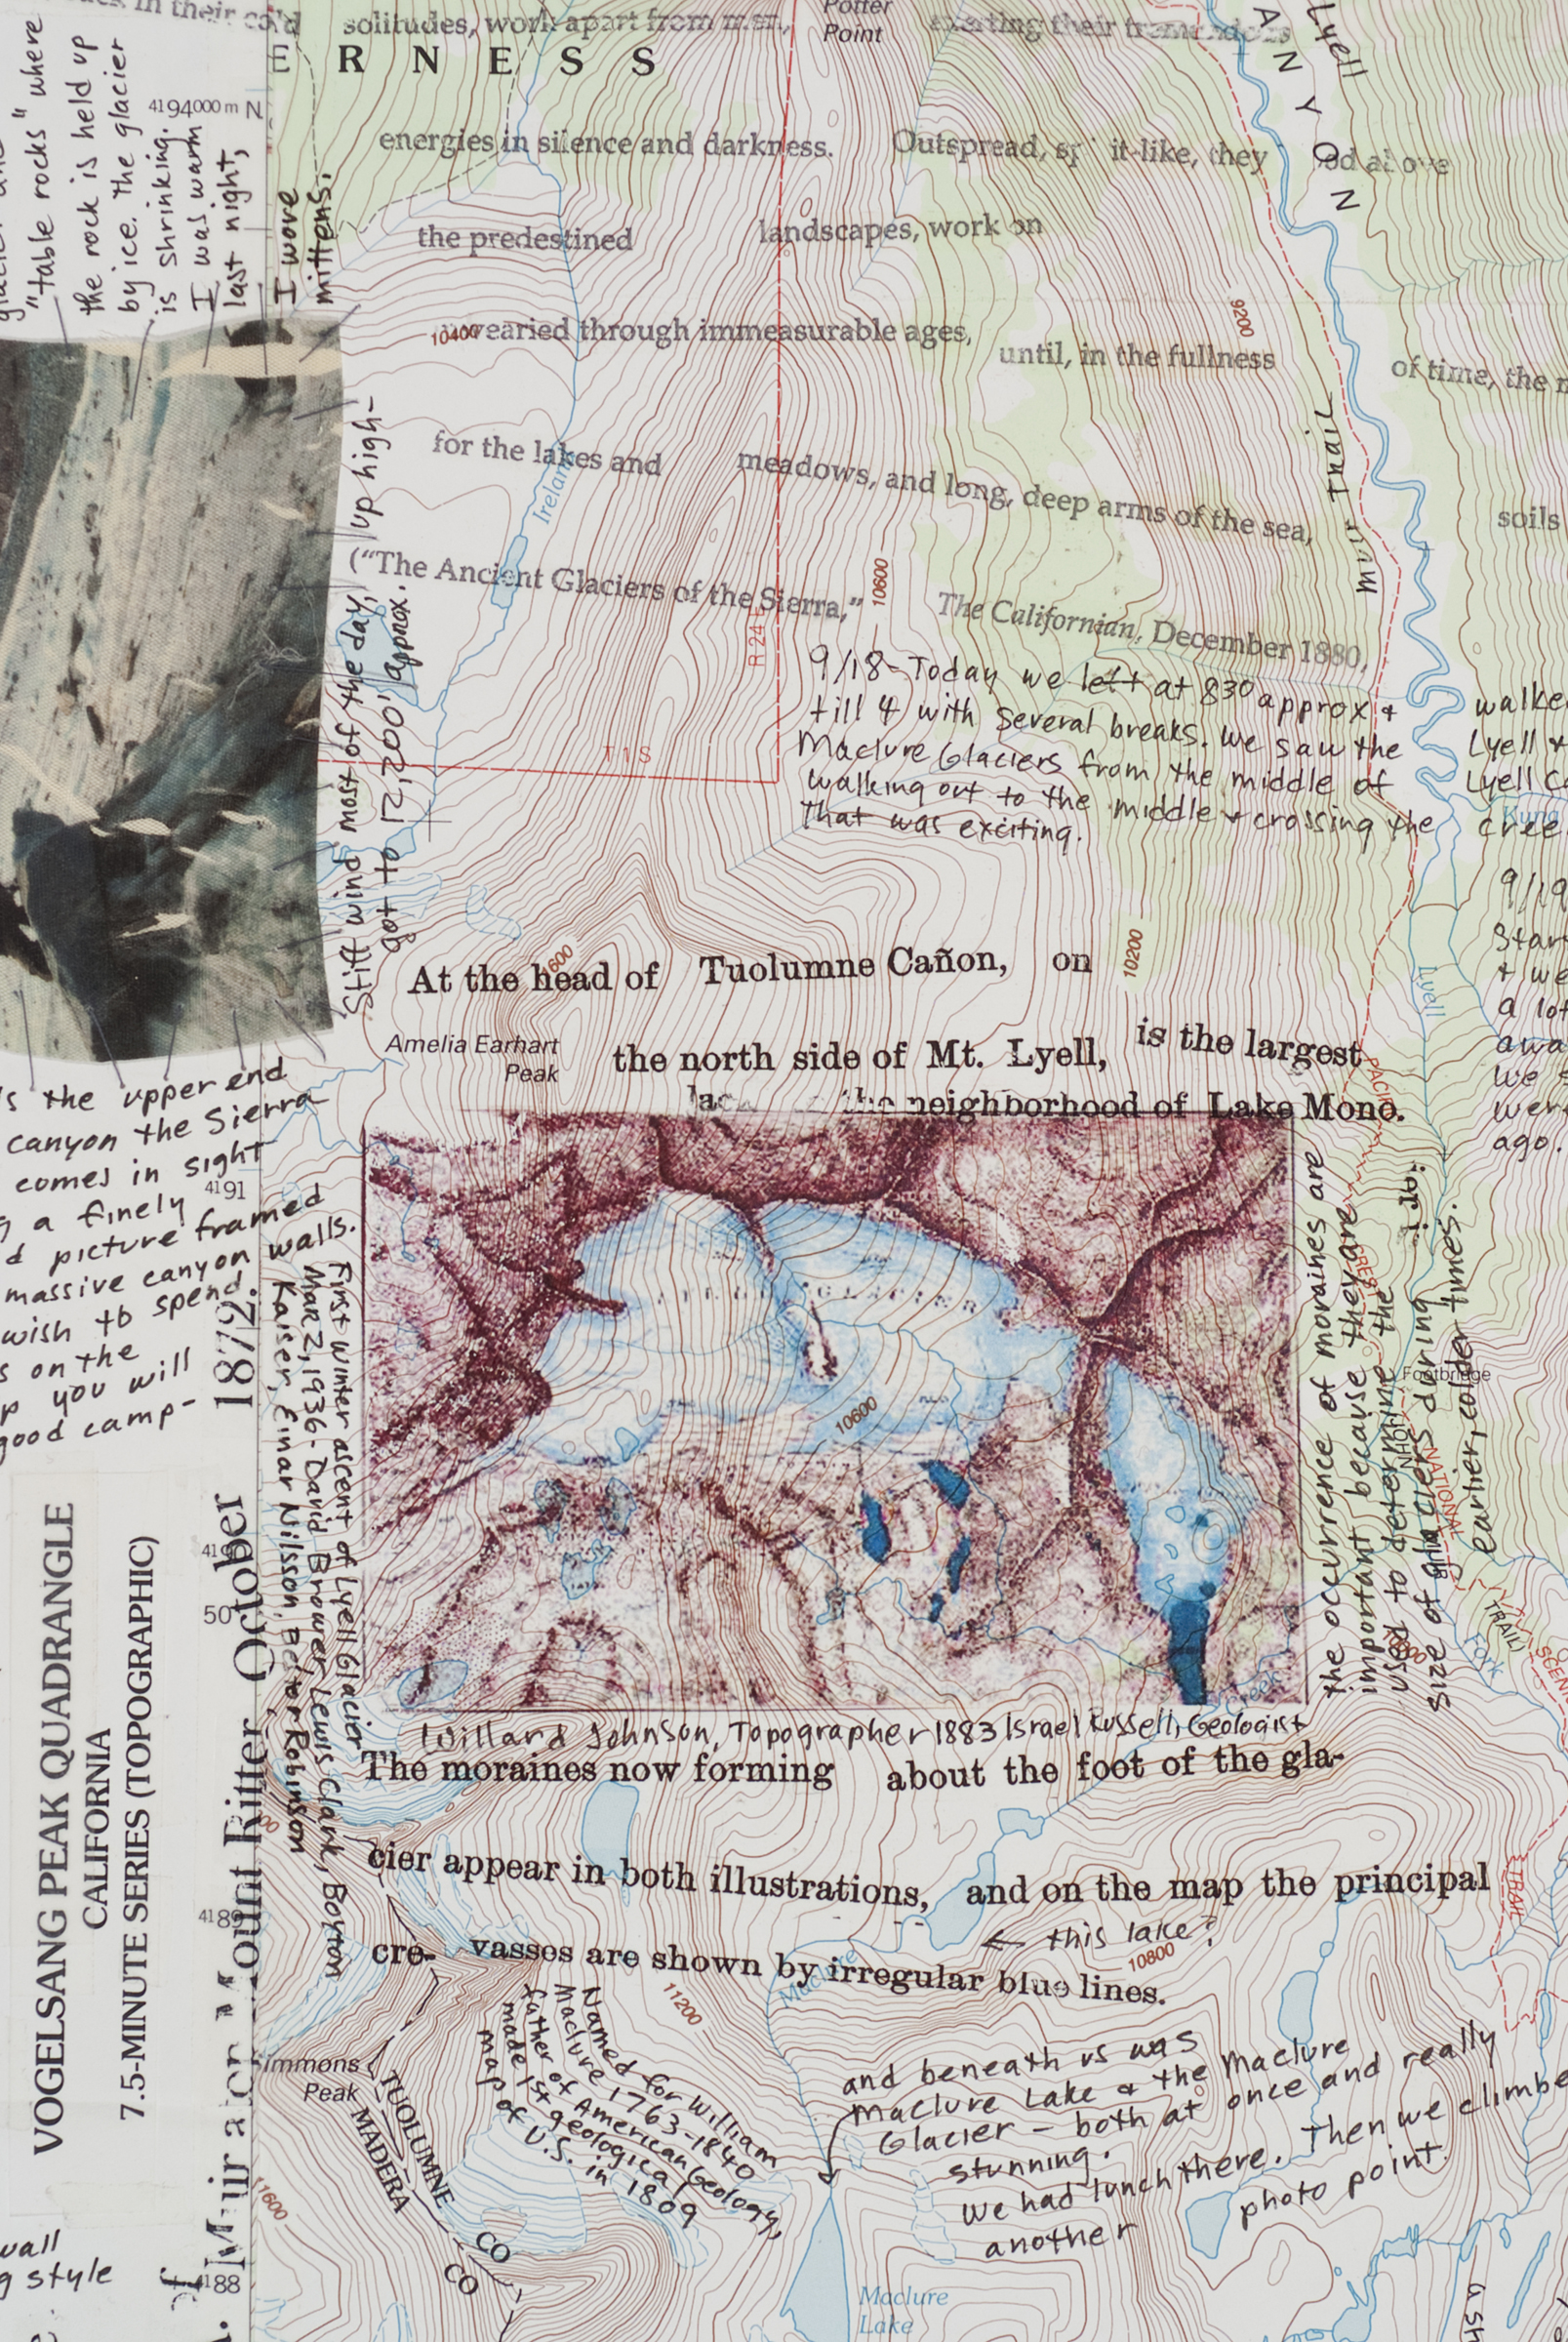 in their cold solitudes, work apart from men, exerting their tremendous
Potter
Point
E R N E S S
energies in silence and darkness. Outspread, it-like, they
the predestined landscapes, work on
unwearied through immeasurable ages,
until, in the fullness of time, the
for the lakes and meadows, and long, deep arms of the sea,
soils
("The Ancient Glaciers of the Sierra," The Californian, December 1880,
"table rocks" where
the rock is held up
by ice. the glacier
is shrinking.
I was warm
last night,
I wore
mittens.
4194000m N
Lyell
A N Y O N
Ireland
10400
9200
10600
R 24 E
T 1 S
muir trail
up high-
Still wind most of the day,
got to 12,200' approx.
9/18-Today we left at 830 approx + walke
till 4 with several breaks. We saw the Lyell +
Maclure Glaciers from the middle of Lyell C
walking out to the middle + crossing the cree
that was exciting.
9/19
Star
+ we
a lot
awa
we
wer
ago.
At the head of Tuolumne Cañon, on
600
10200
Lyell
Amelia Earhart
Peak
the north side of Mt. Lyell, is the largest
the neighborhood of Lake Mono.
s the upper end
canyon the Sierra
comes in sight
g a finely
d picture framed
massive canyon walls.
wish to spend
s on the
p you will
good camp-
4191
GLACIER
10600
First winter ascent of Lyell Glacier
Mar 2, 1936- David Brower, Lewis Clark, Boyton
Kaiser, Einar Nillsson, Bestor Robinson
the occurrence of moraines are
important because they are
used to determine the
size of glaciers during
earlier, colder times.
Footbridge
PACIFIC
CREST
NATIONAL
SCEN
TRAIL)
TRAIL
Fork
Creek
Willard Johnson, Topographer 1883 Israel Russell, Geologist
The moraines now forming about the foot of the gla-
cier appear in both illustrations, and on the map the principal
cre- vasses are shown by irregular blue lines.
← this lake?
10800
11200
Maclure
VOGELSANG PEAK QUADRANGLE
CALIFORNIA
7.5-MINUTE SERIES (TOPOGRAPHIC)
of Muir Mount Ritter October 1872.
50
4189
Simmons
Peak
TUOLUMNE CO
MADERA CO
Named for William
Maclure 1763-1840
father of American Geology,
made 1st geological
map of U.S. in 1809
and beneath us was
Maclure Lake & the Maclure
Glacier - both at once and really
stunning.
We had lunch there. Then we climbe
another photo point.
11600
4188
wall
g style
Maclure
Lake